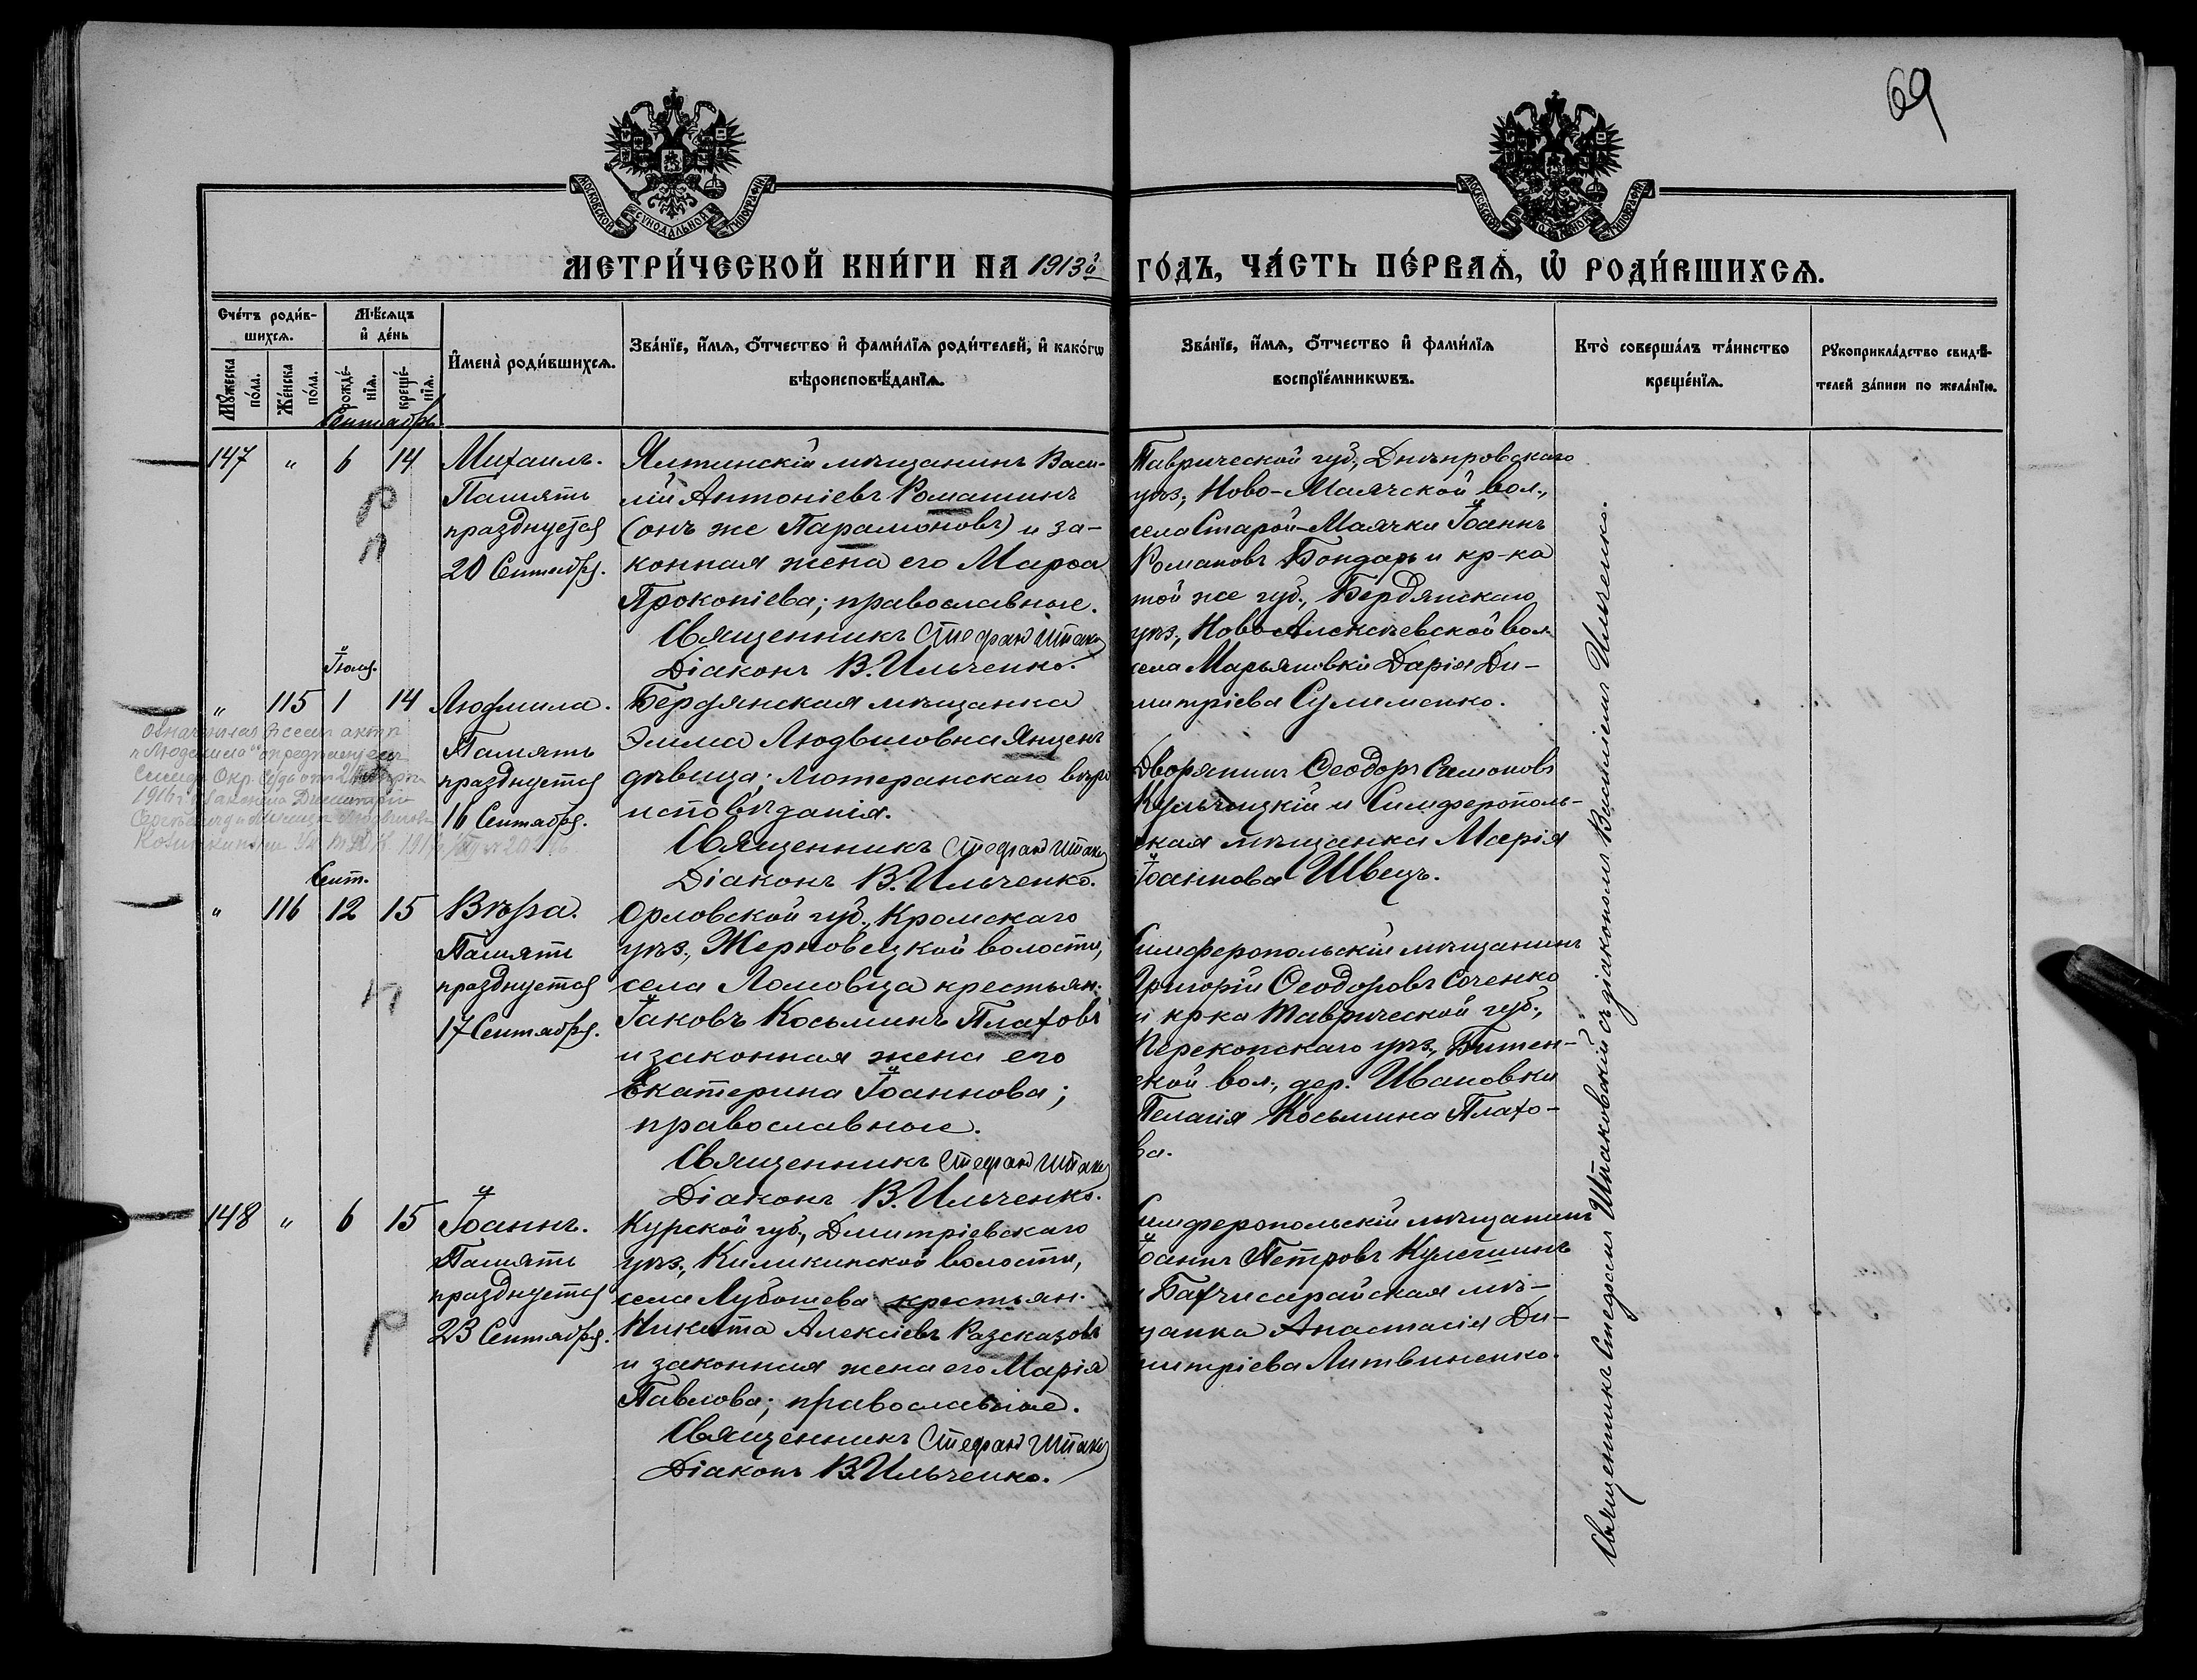 69
МОСКОВСКОЙ СѴНОДАЛЬНОЙ ТИПОГРАФІИ
МОСКОВСКОЙ СѴНОДАЛЬНОЙ ТИПОГРАФІИ
МЕТРИ́ЧЕСКОЙ КНИ́ГИ НА 1913й ГО́ДЪ, ЧА́СТЬ ПЕ́РВАѦ, Ѡ҆ РОДИ́ВШИХСѦ.
Сче́тъ роди́в-
шихсѧ.
Мꙋ́жеска по́ла.
Же́нска по́ла.
Мѣ́сѧцъ
и҆ де́нь
рожде́-нїѧ.
креще́-нїѧ.
И҆мена̀ роди́вшихсѧ.
Зва́нїе, и҆́мѧ, ѻ҆́тчество и҆ фами́лїѧ роди́телей, и҆ како́гѡ
вѣроисповѣ́данїѧ.
Зва́нїе, и҆́мѧ, ѻ҆́тчество и҆ фами́лїѧ
воспрїе́мникѡвъ.
Кто̀ соверша́лъ та́инство
креще́нїѧ.
Рꙋкоприкла́дство свидѣ́-
телей за́писи по жела́нїю.
Сентябрь
147 " 6 14 Михаилъ.
Память
празднуется
20 Сентября.
Ялтинскій мѣщанинъ Васи-
лій Антоніевъ Ромашинъ
(онъ же Парамоновъ) и за-
конная жена его Марѳа
Прокопіева; православные.
Священникъ Стефанъ Штак
Діаконъ В. Ильченко.
Таврической губ., Днѣпровскаго
уѣз., Ново-Маячской вол.,
села Старой-Маячки Іоаннъ
Романовъ Бондарь и кр-ка
той же губ., Бердянскаго
уѣз., Ново-Алексѣевской вол.
села Марьяновки Дарія Ди-
митріева Сулименко.
Іюля.
" 115 1 14 Людмила.
Память
празднуется
16 Сентября.
Бердянская мѣщанка
Эмма Людвиговна Янценъ
дѣвица; лютеранскаго вѣро
исповѣданія.
Священникъ Стефанъ Штак
Діаконъ В. Ильченко.
Дворянинъ Ѳеодоръ Симоновъ
Кульчицкій и Симферополь-
ская мѣщанка Марія
Іоаннова Швецъ.
Сент.
" 116 12 15 Вѣра.
Память
празднуется
17 Сентября.
Орловской губ., Кромскаго
уѣз., Жерновецкой волости,
села Ломовца крестьян.
Іаковъ Косьминъ Плаховъ
и законная жена его
Екатерина Іоаннова;
православные.
Священникъ Стефанъ Штак
Діаконъ В. Ильченко.
Симферопольскій мѣщанинъ
Григорій Ѳеодоровъ Соченко
и кр-ка Таврической губ.,
Перекопскаго уѣз., Битен-
ской вол., дер. Ивановки
Пелагія Косьмина Плахо-
ва.
148 " 6 15 Іоаннъ.
Память
празднуется
23 Сентября.
Курской губ., Дмитріевскаго
уѣз., Киликинской волости,
села Лубошева крестьян.
Никита Алексіевъ Разсказовъ
и законная жена его Марія
Павлова; православные.
Священникъ Стефанъ Штак
Діаконъ В. Ильченко.
Симферопольскій мѣщанинъ
Іоаннъ Петровъ Кулешинъ
и Бахчисарайская мѣ-
щанка Анастасія Ди-
митріева Литвиненко.
Священникъ Стефанъ Штаковскій съ діакономъ Василіемъ Ильченко.